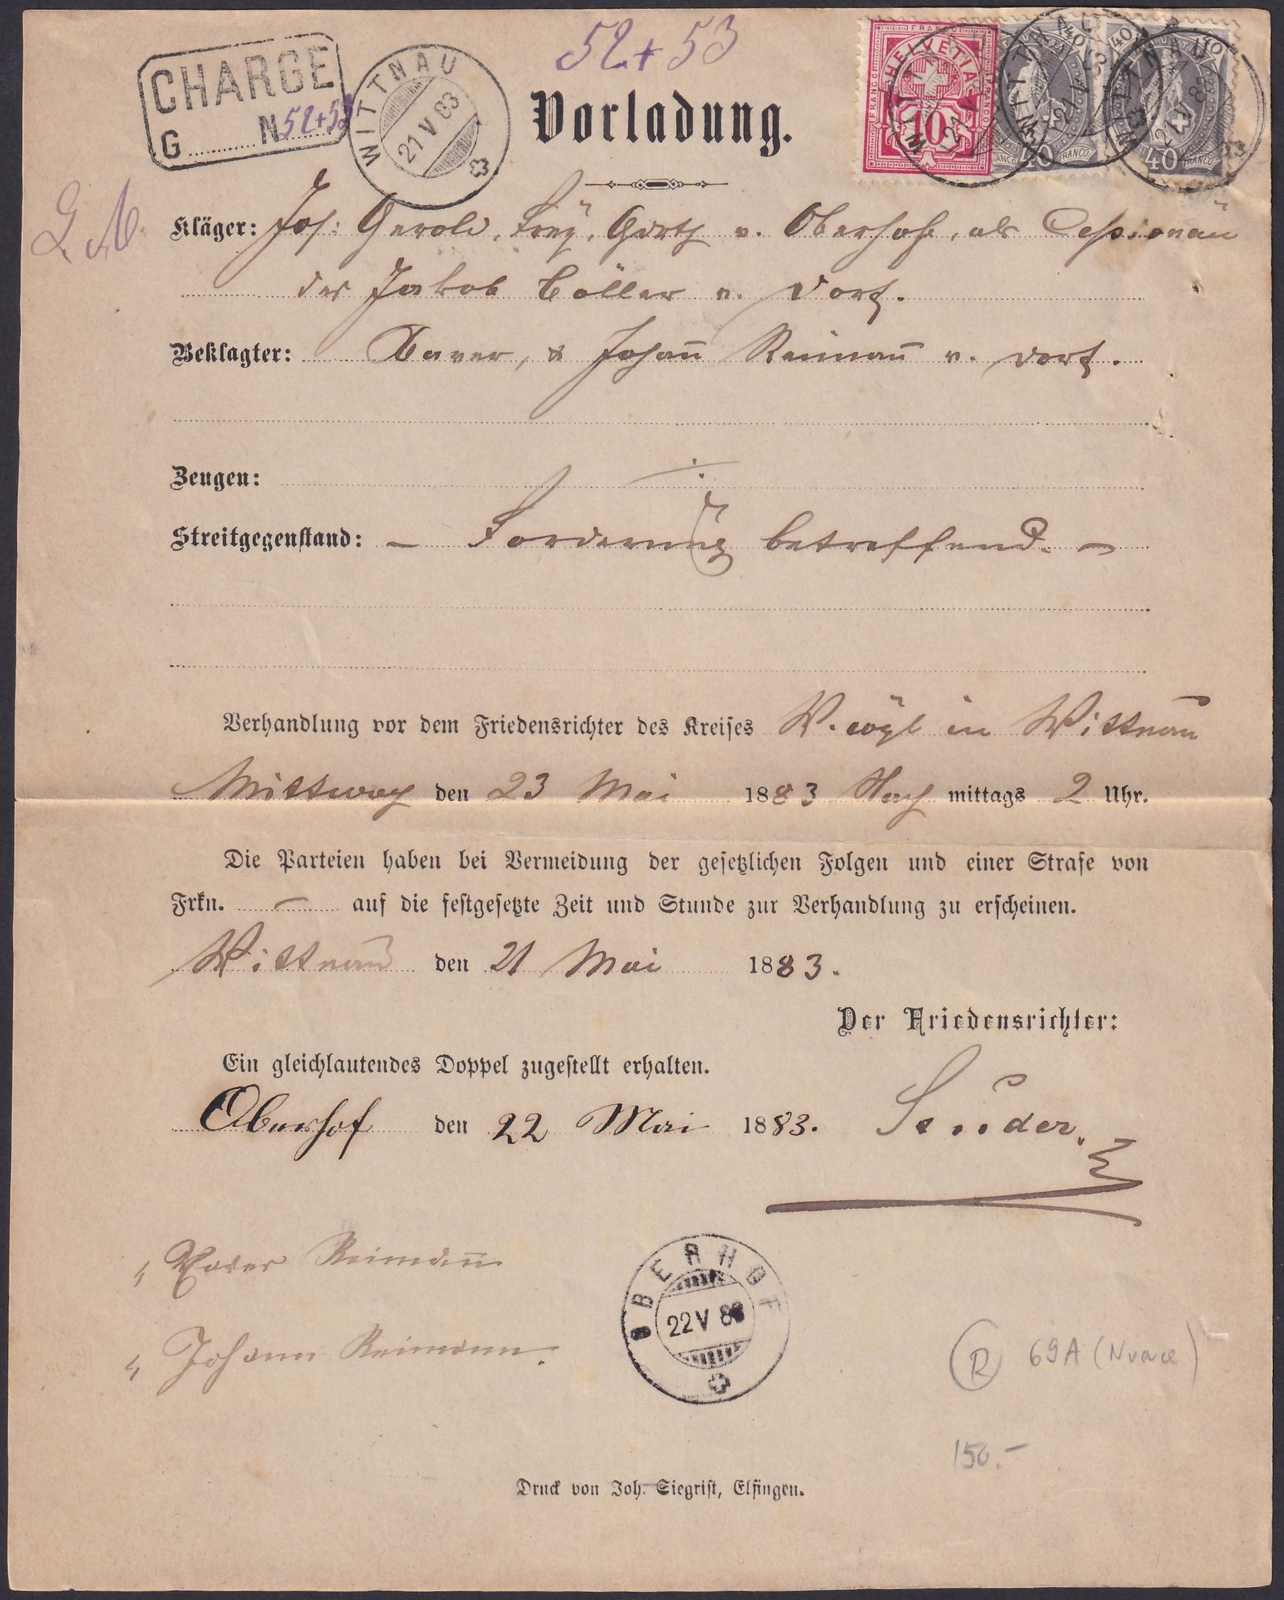 52 + 53
CHARGÉ
G ......... N 52+53
WITTNAU
21 V 83
HELVETIA
FRANCO
10
40
FRANCO
40
FRANCO
WITTNAU
21 V 83
Vorladung.
Kläger: Joh: Gerold, Frey, Gerts v. Oberhof, als Cessionär
des Jakob Böller v. dort.
Beklagter: Xaver, & Johañ Reimañ v. dort.
Zeugen: ./.
Streitgegenstand: – Forderung betreffend. –
Verhandlung vor dem Friedensrichter des Kreises W. in Wittnau
Mittwoch den 23 Mai 1883 Nach mittags 2 Uhr.
Die Parteien haben bei Vermeidung der gesetzlichen Folgen und einer Strafe von
Frkn. – auf die festgesetzte Zeit und Stunde zur Verhandlung zu erscheinen.
Wittnau den 21 Mai 1883.
Der Friedensrichter:
Ein gleichlautendes Doppel zugestellt erhalten.
Oberhof den 22 Mai 1883.
Xaver Reimañ
Johann Reimann.
OBERHOF
22 V 83
R 69A (Nuance)
150.–
Druck von Joh. Siegrist, Elfingen.